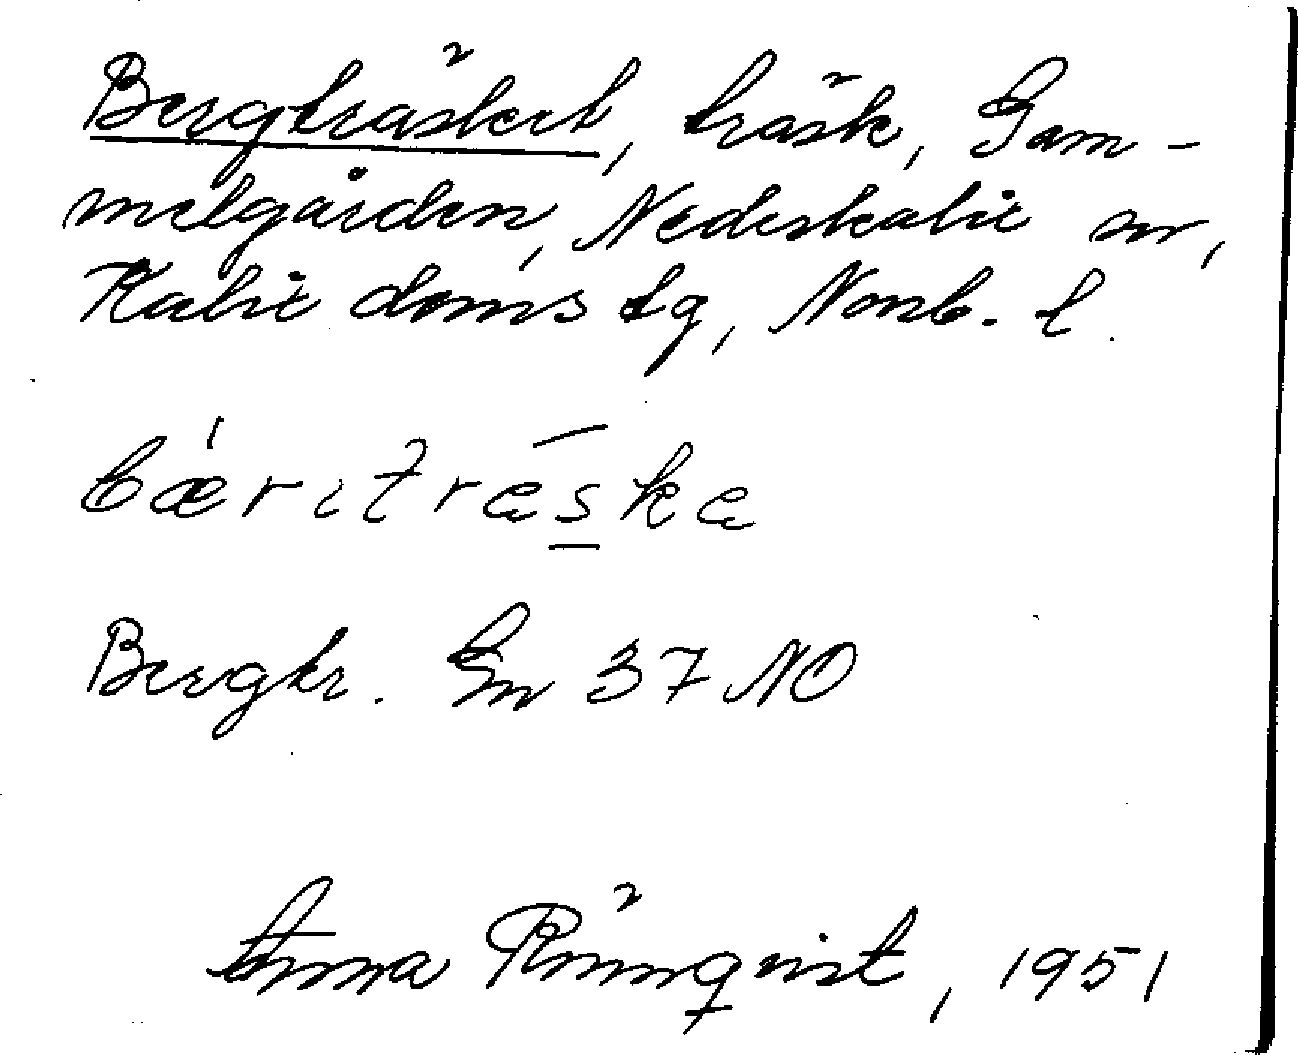 Bergträsket, träsk, Gam-
melgården, Nederkalix sn,
Kalix doms lg, Norrb. l.
bæ̀rɩtrǣska
Bergtr. En 37 NO
Anna Rönnqvist, 1951